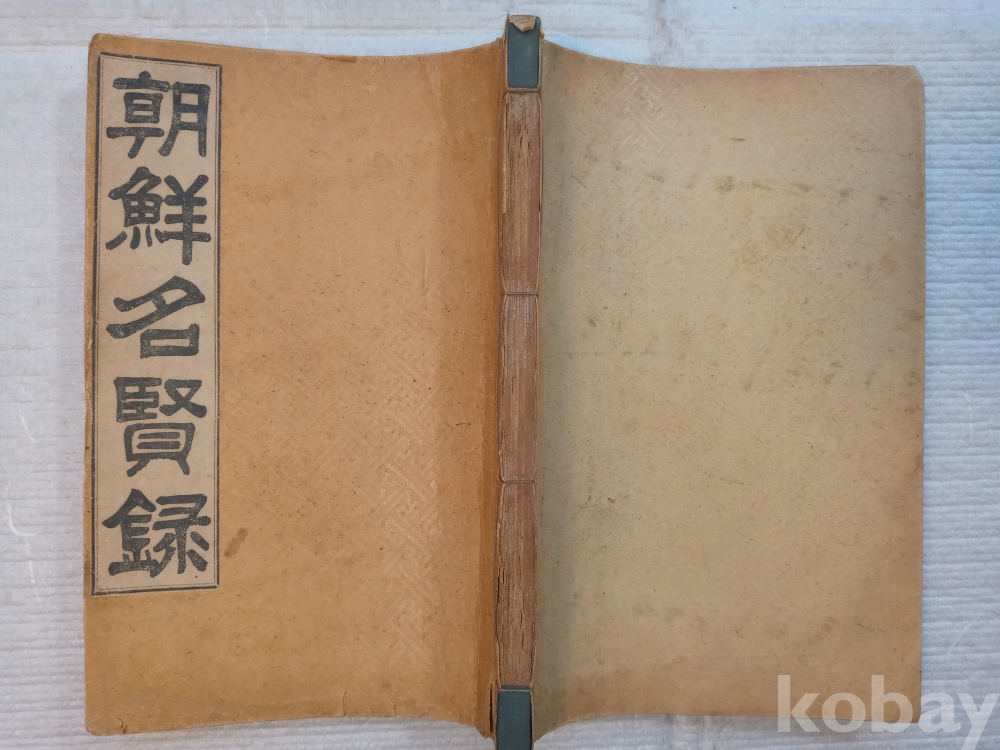 朝鮮名賢録
kobay